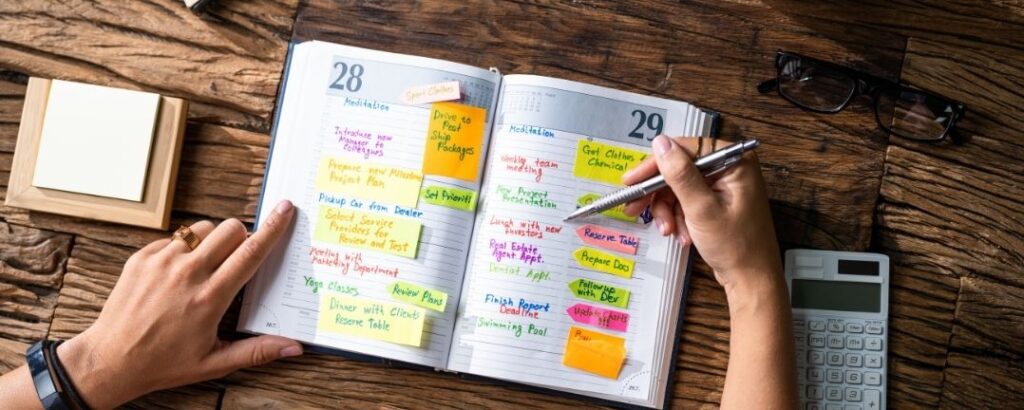 28
Sport Clothes
Meditation
Drive to
Post
Ship
Packages
Introduce new
Manager to
Colleagues
Prepare new Milestone
Project Plan
Set Priority
Pickup Car from Dealer
Select Service
Providers for
Review and Test
Meeting with
Marketing Department
Yoga Classes
Review Plans
Dinner with Clients
Reserve Table
29
Meditation
Get Clothes
Chemical
Weekly team
meeting
New Project
Presentation
Lunch with new
Investors
Reserve Table
Real Estate
Agent Appt.
Prepare Docs
Dentist Appt.
Followup
with Dev
Finish Report
Deadline
Update Charts
Swimming Pool